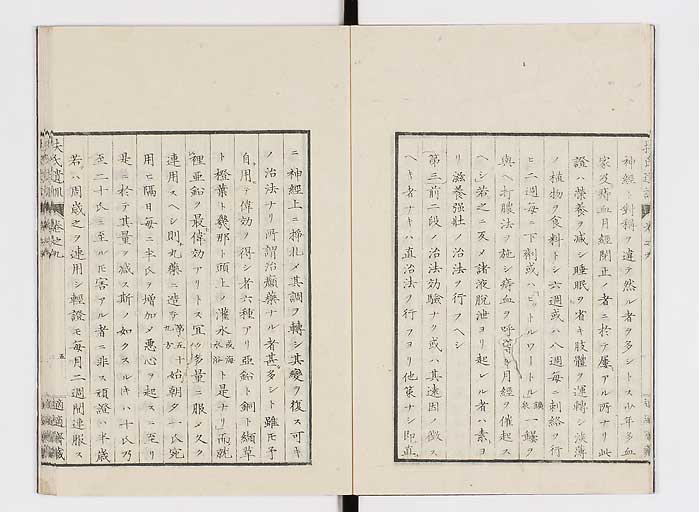 神經ト對稱ヲ遺テ然ル者ヲ多シトス少年多血
家及痔血月經閉止ノ者ニ於テ屢アル所ナリ此
證ハ榮養ヲ减シ睡眠ヲ省キ肢體ヲ運轉シ淡薄
ノ植物ヲ食料トシ六週或ハ八週毎ニ刺絡ヲ行
ヒ二週毎ニ下劑或ハビットルワートル鑛泉一鱶ヲ
與ヘ打膿法ヲ施シ痔血ヲ呼ヒ月經ヲ催起ス
ヘシ若之ニ反メ諸液脱泄ヨリ起レル者ハ素ヨ
リ滋養强壯ノ治法ヲ行フヘシ
第三前二段ノ治法効驗ナク或ハ其遠因ノ徴ス
ヘキ者ナキハ直治法ヲ行フヨリ他策ナシ即直
ニ神經上ニ挣扎メ其調ヲ轉シ其變ヲ復ス可キ
ノ治法ナリ所謂治癲藥ナル者甚多シト雖モ予
自用テ偉効ヲ得シ者六種アリ亜鉛ト銅ト纈草
ト橙葉ト幾那ト頭上ノ灌水或海水浴ト是ナリ而就
裡亜鉛ヲ最偉効アリトス宜ク多量ニ服メ久ク
連用スヘシ則丸藥ニ造テ第五十九方始朝夕一氏宛
用ヒ隔日每ニ半氏ヲ增加メ惡心ヲ起スニ至リ
是ニ於テ其量ヲ减ス斯ノ如クスルキハ十氏乃
至二十氏ニ至ルモ害アル者ニ非ス頑證ハ半歳
若ハ周歳之ヲ連用シ輕證モ每月二週間連服ス
扶氏遺訓 卷之九
五
適適齋藏